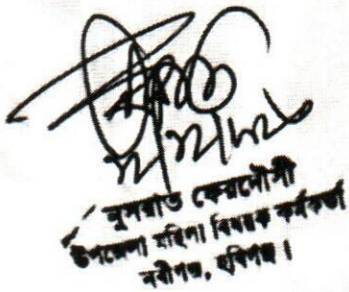 নুসরাত ফেরদৌসী
উপজেলা মহিলা বিষয়ক কর্মকর্তা
নবীগঞ্জ, হবিগঞ্জ।